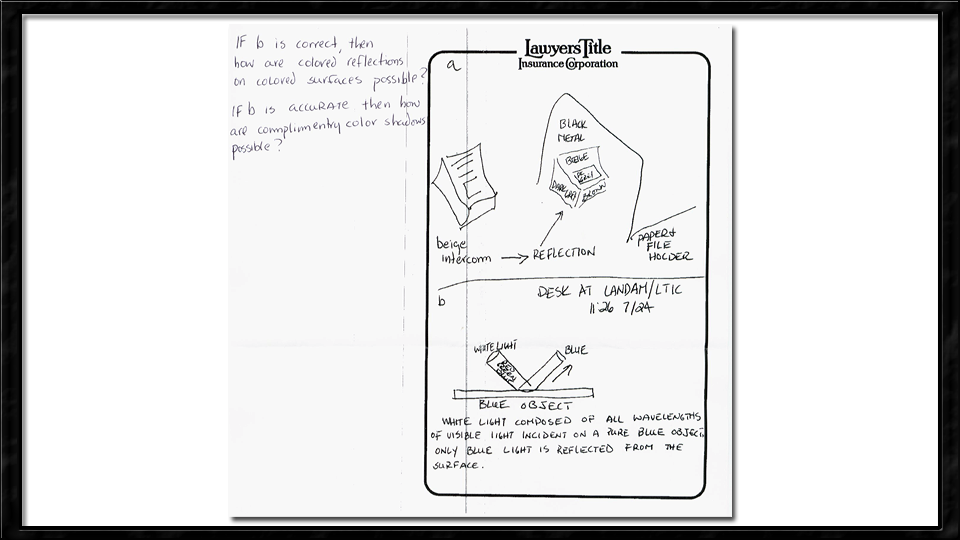 IF b is correct, then
how are colored reflections
on colored surfaces possible?
IF b is accurate then how
are complimentry color shadows
possible?
Lawyers Title
Insurance Corporation
a
BLACK
METAL
BEIGE
BROWN
beige
intercom
REFLECTION
PAPER &
FILE
HOLDER
b
DESK AT LANDAM/LTIC
11:26 7/24
WHITE LIGHT
BLUE
BLUE OBJECT
WHITE LIGHT COMPOSED OF ALL WAVELENGTHS
OF VISIBLE LIGHT INCIDENT ON A PURE BLUE OBJECT.
ONLY BLUE LIGHT IS REFLECTED FROM THE
SURFACE.